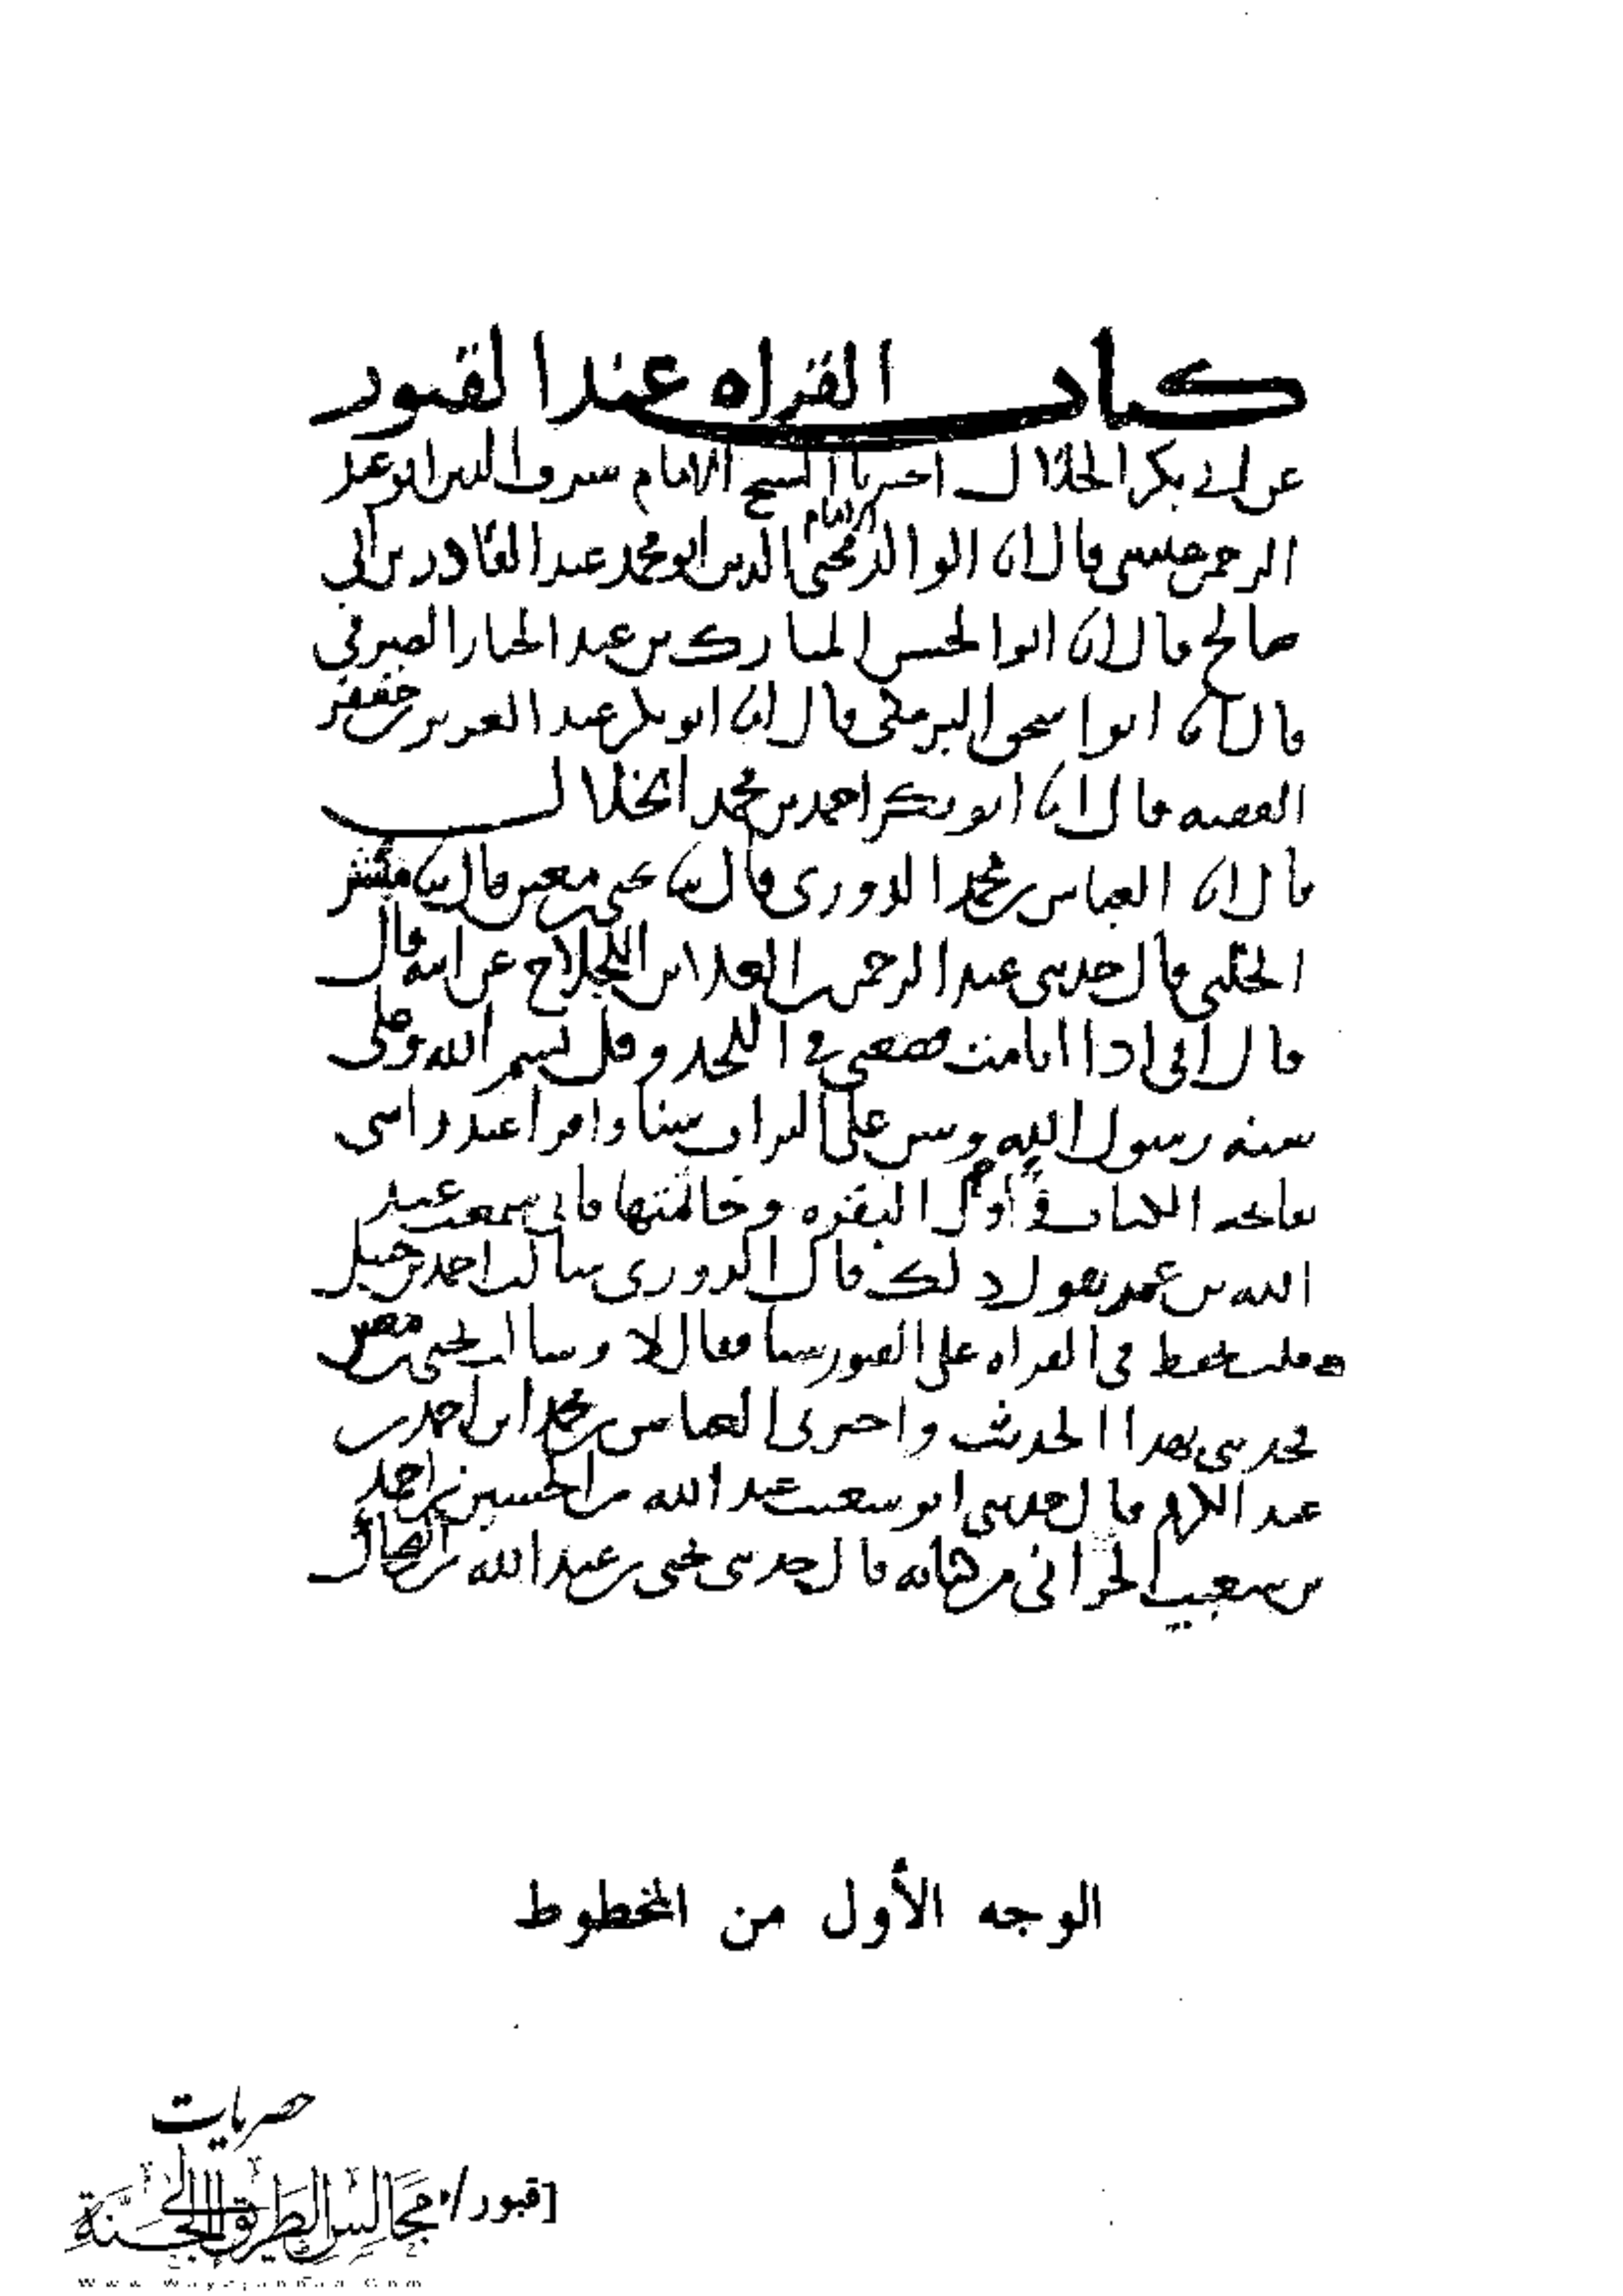 كتاب القراه عند القبور
عن ابى بكر الخلال اخبرنا الشيخ الامام شرف الدين ابو عبد
الرحمن عيسى قال انا الوالد الامام محيى الدين ابو محمد عبد القادر بن ابى
صالح قال انا ابو الحسن المبارك بن عبد الجبار الصيرفي
قال انا ابو اسحق البرمكى قال انا ابو بكر عبد العزيز بن جعفر
الفقيه قال انا ابو بكر احمد بن محمد الخلال
قال انا العباس بن محمد الدورى قال ثنا يحيى بن معين قال ثنا مبشر
الحلبى قال حدثنى عبد الرحمن بن العلا بن اللجلاج عن ابيه قال
قال ابى اذا انا مت فضعنى في اللحد وقل بسم الله وعلى
سنه رسول الله وسن على التراب سنا واقرا عند راسى
بفاتحه الكتاب واول البقره وخاتمتها فانى سمعت عبد
الله بن عمر يقول ذلك قال الدورى سالت احمد بن حنبل
قلت تحفظ فى القراه على القبور شيا فقال لا وسالت يحيى بن معين
فحدثنى بهذا الحديث واخبرنى العباس بن محمد ابن احمد بن
عبد الكريم قال حدثنى ابو شعيب عبد الله بن الحسين بن احمد
بن شعيب الحرانى من كتابه قال حدثنى يحيى بن عبد الله بن الضحاك
الوجه الأول من المخطوط
حصريات
[قبور/ مجالس الطريق إلى الجنة